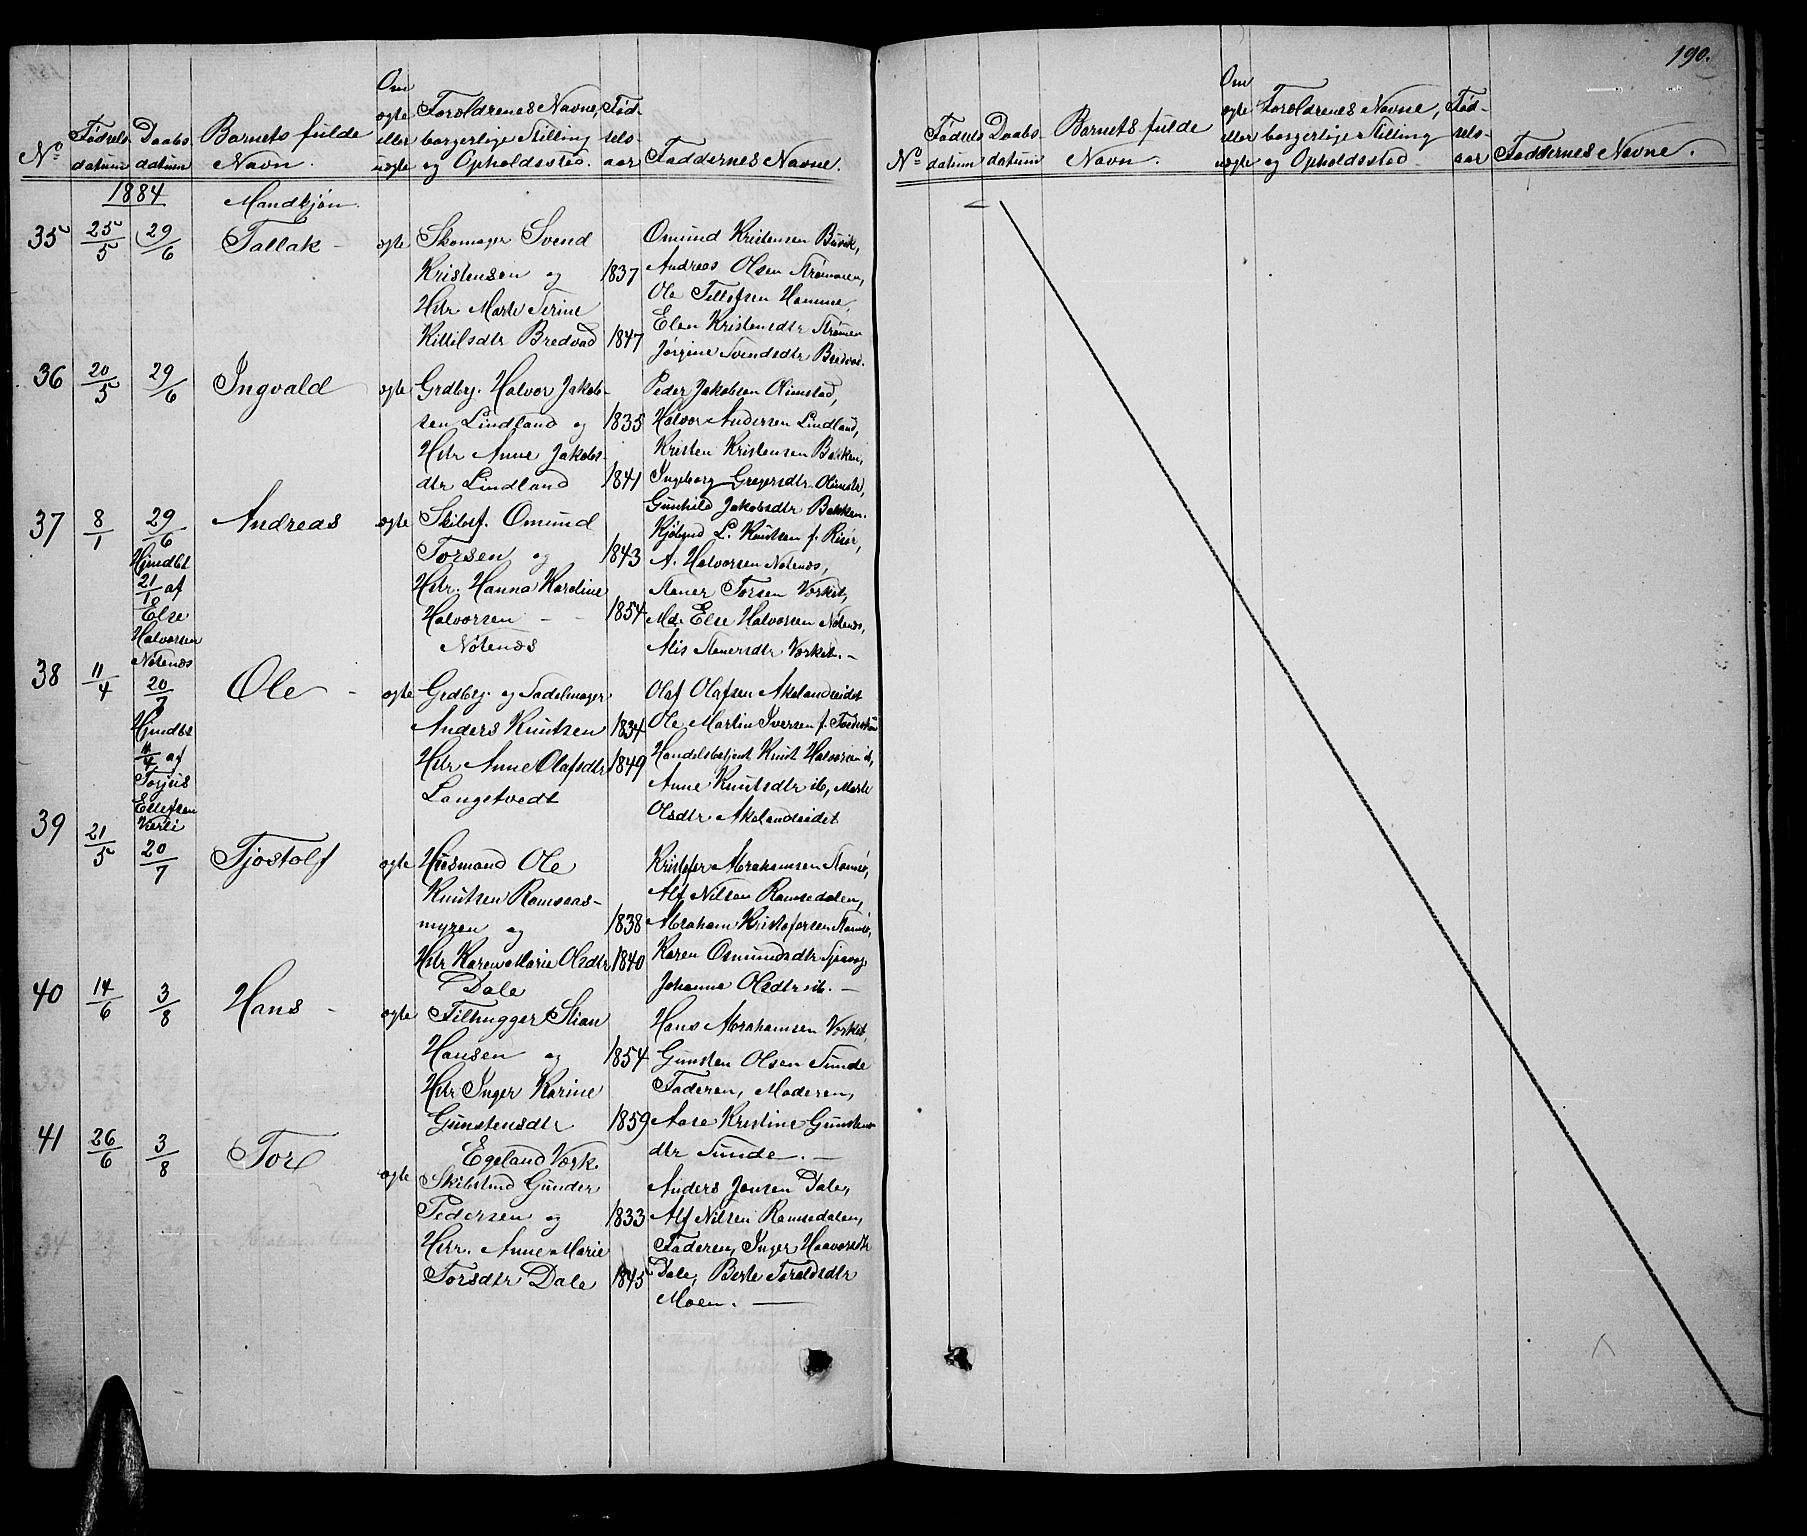 190.
No Fødsels datum Daabs datum Barnets fulde Navn. Om ægte eller uægte Forældrenes Navne, borgerlige Stilling og Opholdssted. Fødselsaar Faddernes Navne.
1884 Mandkjøn.
35 25/5 29/6 Tallak - ægte Skomager Svend
Kristensen og 1837
Hstr Marte Serine
Kittilsdtr Bredvad 1847
Omund Kristensen Buvik,
Andreas Olsen Strømmen,
Ole Tellefsen Hamme,
Elen Kristensdtr Strømen
Jørgine Svendsdtr Bredvad.
36 20/5 29/6 Ingvald ægte Grdbrg. Halvor Jakob-
sen Lindland og 1835
Hstr Anne Jakobs-
dtr Lindland 1841
Peder Jakobsen Olimstad,
Halvor Andersen Lindland,
Kristen Kristensen Bakken,
Ingeborg Gregersdtr Olimstd,
Gunhild Jakobsdtr Bakken.
37 8/1 29/6 Andreas ægte Skibsf. Omund
Hjmdbt
21/1 af
Else
Halvorsen
Notenæs
Torsen og 1843
Hstr. Hanna Kardine
Halvorsen - - 1854
Notenæs
L. Knutsen f. Risør,
A. Halvorsen Notenæs,
Stener Torsen Værket,
Md. Else Halvorsen Notenæs,
Alis Stenersdtr Værket. -
38 11/4 20/7 Ole - ægte Grdbrg. og Sadelmager
Hjmdbt
11/4 af
Torjus
Ellefsen
Anders Knutsen 1834
Hstr Anne Olafsdtr 1849
Langetvedt
Olaf Olafsen Akelandseidet
Ole Martin Iversen f.
Handelsbetjent Knut Halvorsen ib,
Anne Knutsdtr ib, Marte
Olsdtr Akelandseidet
39 21/5 20/7 Tjostolf ægte Husmand Ole
Knutsen Ramsaas-
myren og 1838
Hstr Karen Marie Olsdtr 1840
Dale
Kristofer Abrahamsen
Alf Nilsen Ramsedalen,
Abraham Kristofersen
Karen Omundsdtr
Johanne Olsdtr ib. -
40 14/6 3/8 Hans - ægte Filhugger Stian
Hansen og 1854
Hstr Inger Karine
Gunstensdtr 1859
Egeland Værk.
Hans Abrahamsen Værket,
Gunsten Olsen Sunde
Faderen, Moderen,
Aase Kristine Gunstens-
dtr Sunde. -
41 26/6 3/8 Tor ægte Skibstmd Gunder
Pedersen og 1833
Hstr. Anne Marie
Torsdtr Dale 1845
Anders Jensen Dale,
Alf Nilsen Ramsedalen,
Faderen, Inger Haavorsdtr
Dale, Berte Toraldsdtr
Moen. -
No Fødsels datum Daabs datum Barnets fulde Navn. Om ægte eller uægte Forældrenes Navne, borgerlige Stilling og Opholdssted Fødselsaar Faddernes Navne.